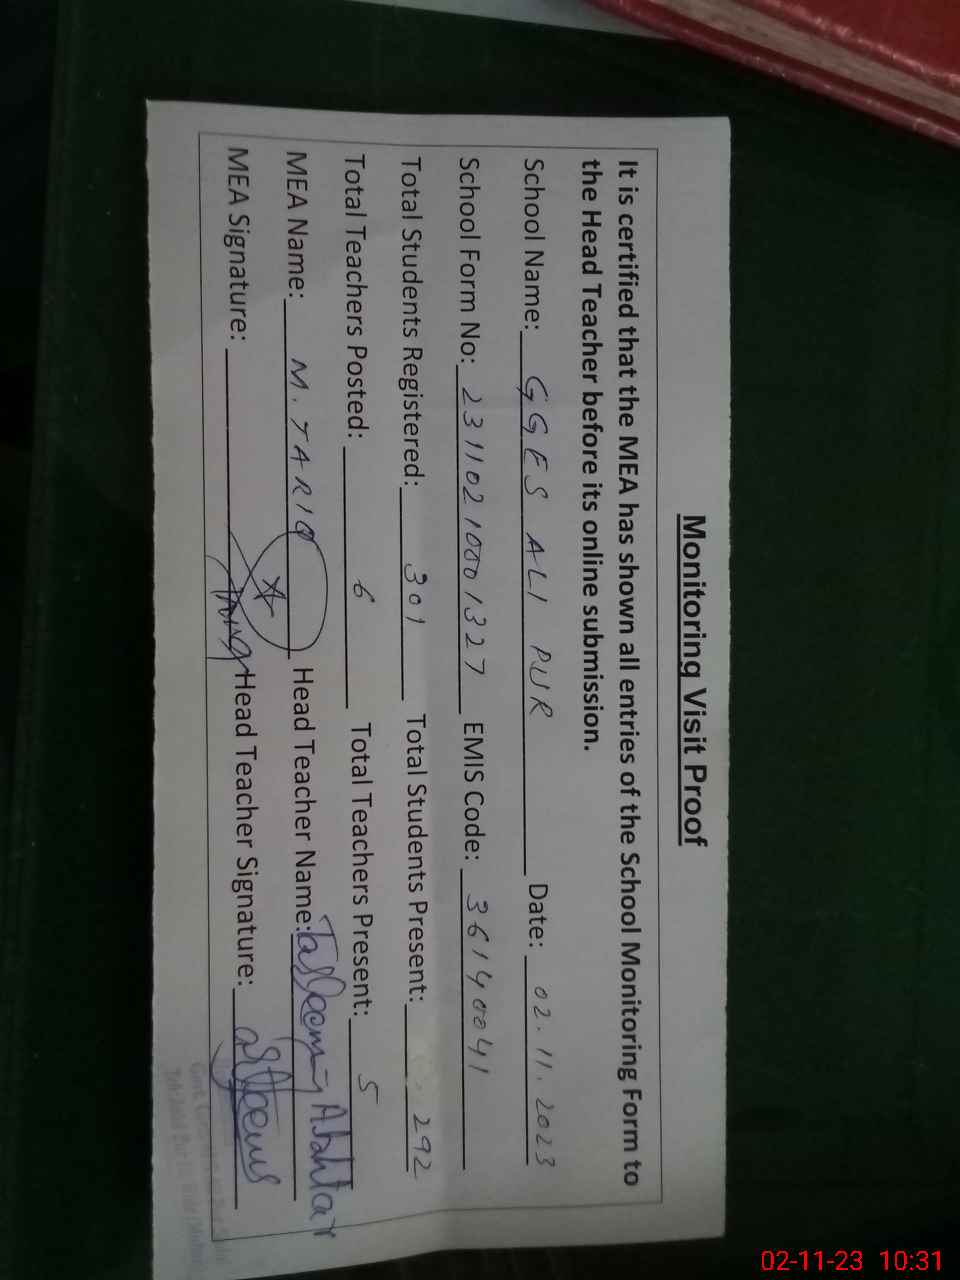 Monitoring Visit Proof
It is certified that the MEA has shown all entries of the School Monitoring Form to
the Head Teacher before its online submission.
School Name: GGES ALI PUR Date: 02.11.2023
School Form No: 23110210001327 EMIS Code: 36140041
Total Students Registered: 301 Total Students Present: 292
Total Teachers Posted: 6 Total Teachers Present: 5
MEA Name: M. TARIQ Head Teacher Name: Tasleem Akhtar
MEA Signature: Head Teacher Signature:
02-11-23 10:31